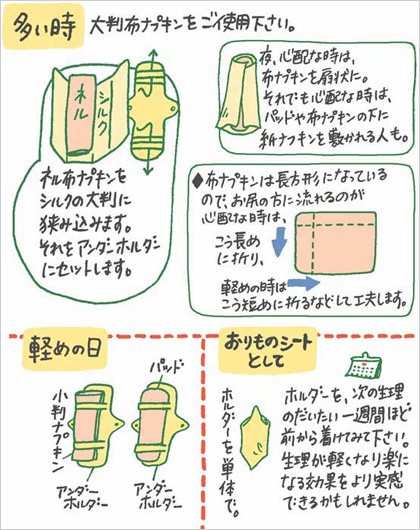 多い時
大判布ナプキンをご使用下さい。
ネル
シルク
ネル布ナプキンを
シルクの大判に
挟み込みます。
それをアンダーホルダー
にセットします。
夜、心配な時は、
布ナプキンを扇状に。
それでも心配な時は、
パッドや布ナプキンの下に
紙ナプキンを敷かれる人も。
◆布ナプキンは長方形になっている
ので、お尻の方に流れるのが
心配な時は、
こう長め
に折り、
軽めの時は
こう短めに折るなどして工夫します。
軽めの日
小判ナプキン
パッド
アンダー
ホルダー
アンダー
ホルダー
おりものシート
として
ホルダーを単体で。
ホルダーを、次の生理
のだいたい一週間ほど
前から着けてみて下さい。
生理が軽くなり楽に
なる効果をより実感
できるかもしれません。